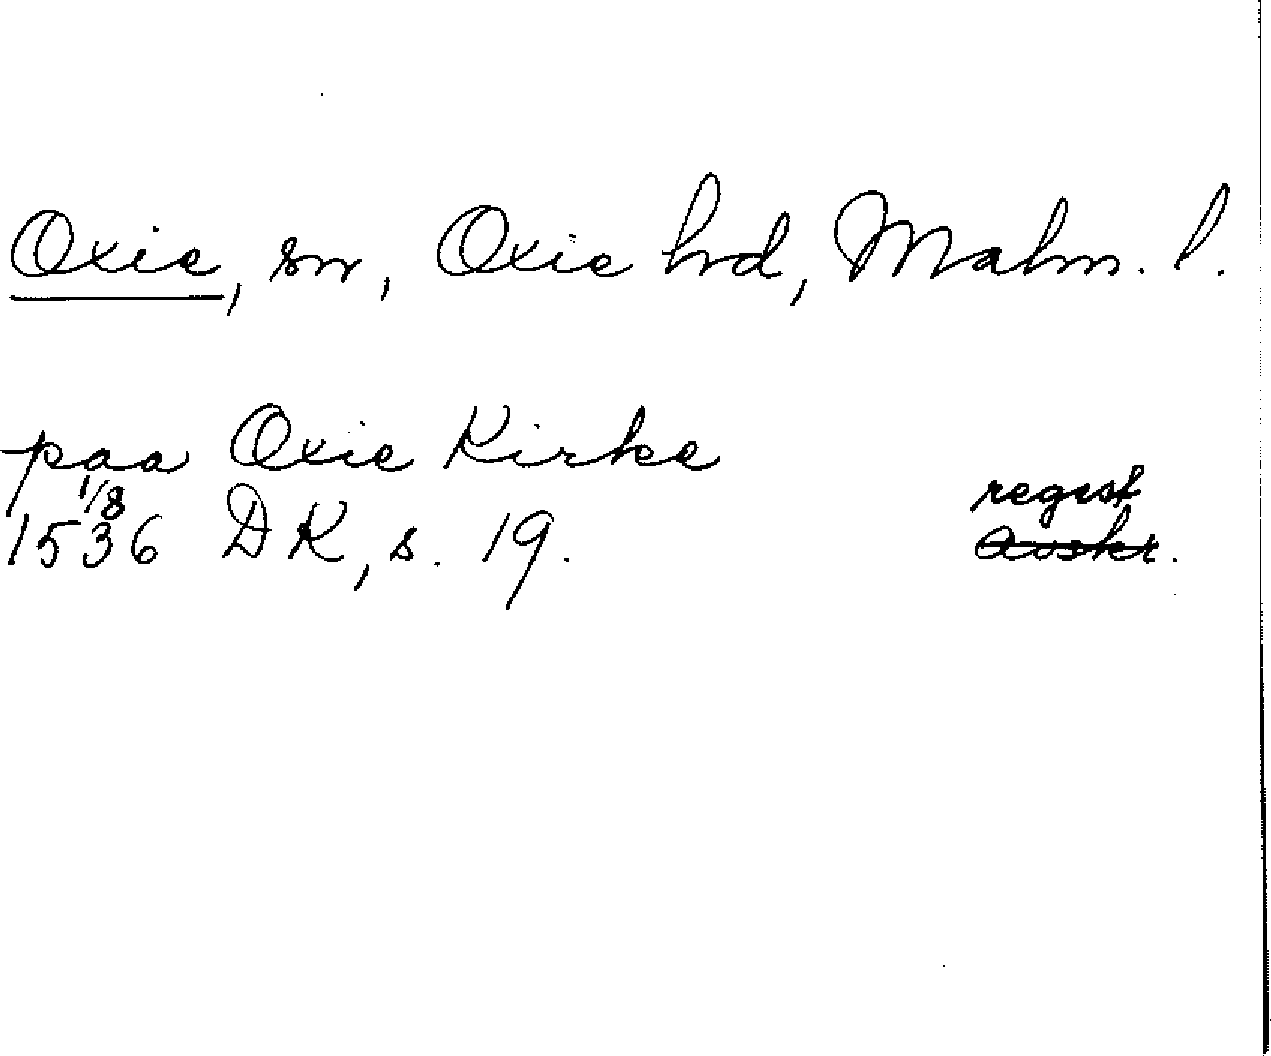 Oxie, sn, Oxie hrd, Malm. l.
paa Oxie Kirke
1/8
1536 DK, s. 19.
regist
avskr.